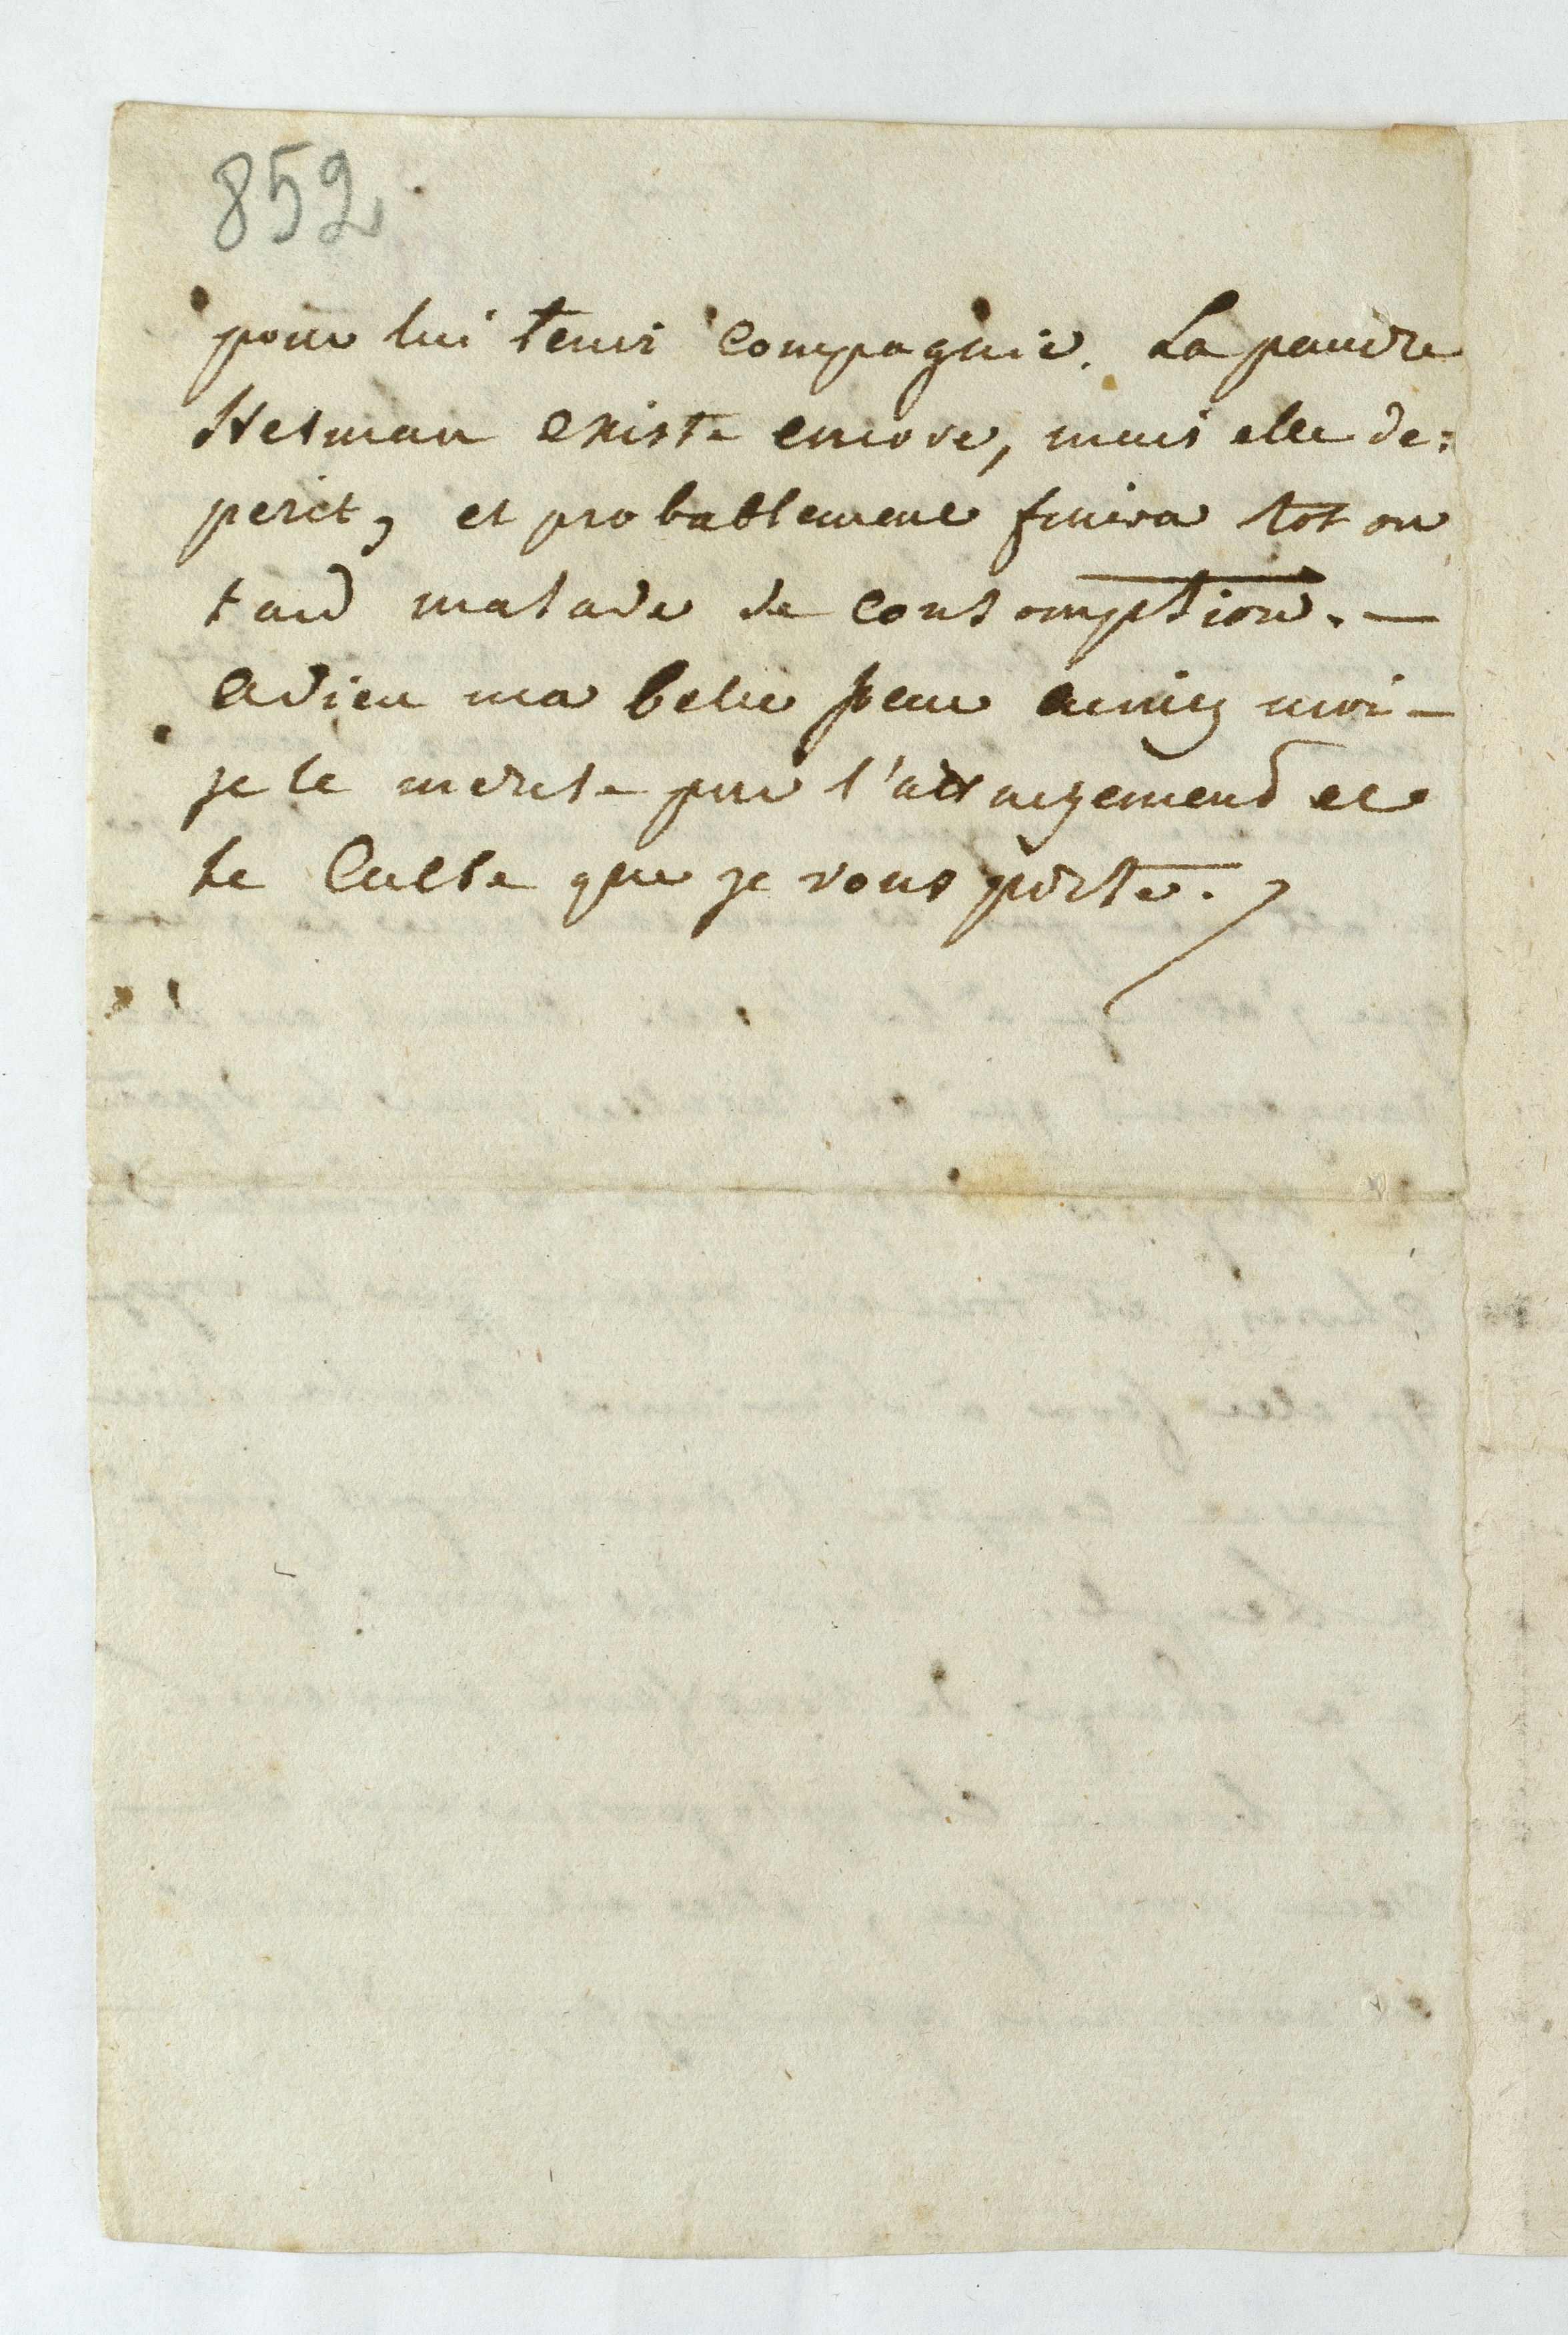 852
pour lui tenir compagnie. La pauvre
Hetman existe encore, mais elle de:
perit, et probablement finira tot ou
tard malade de consomption. —
Adieu ma belle peur aimez moi —
je le merite par l'attachement et
le culte que je vous porte.